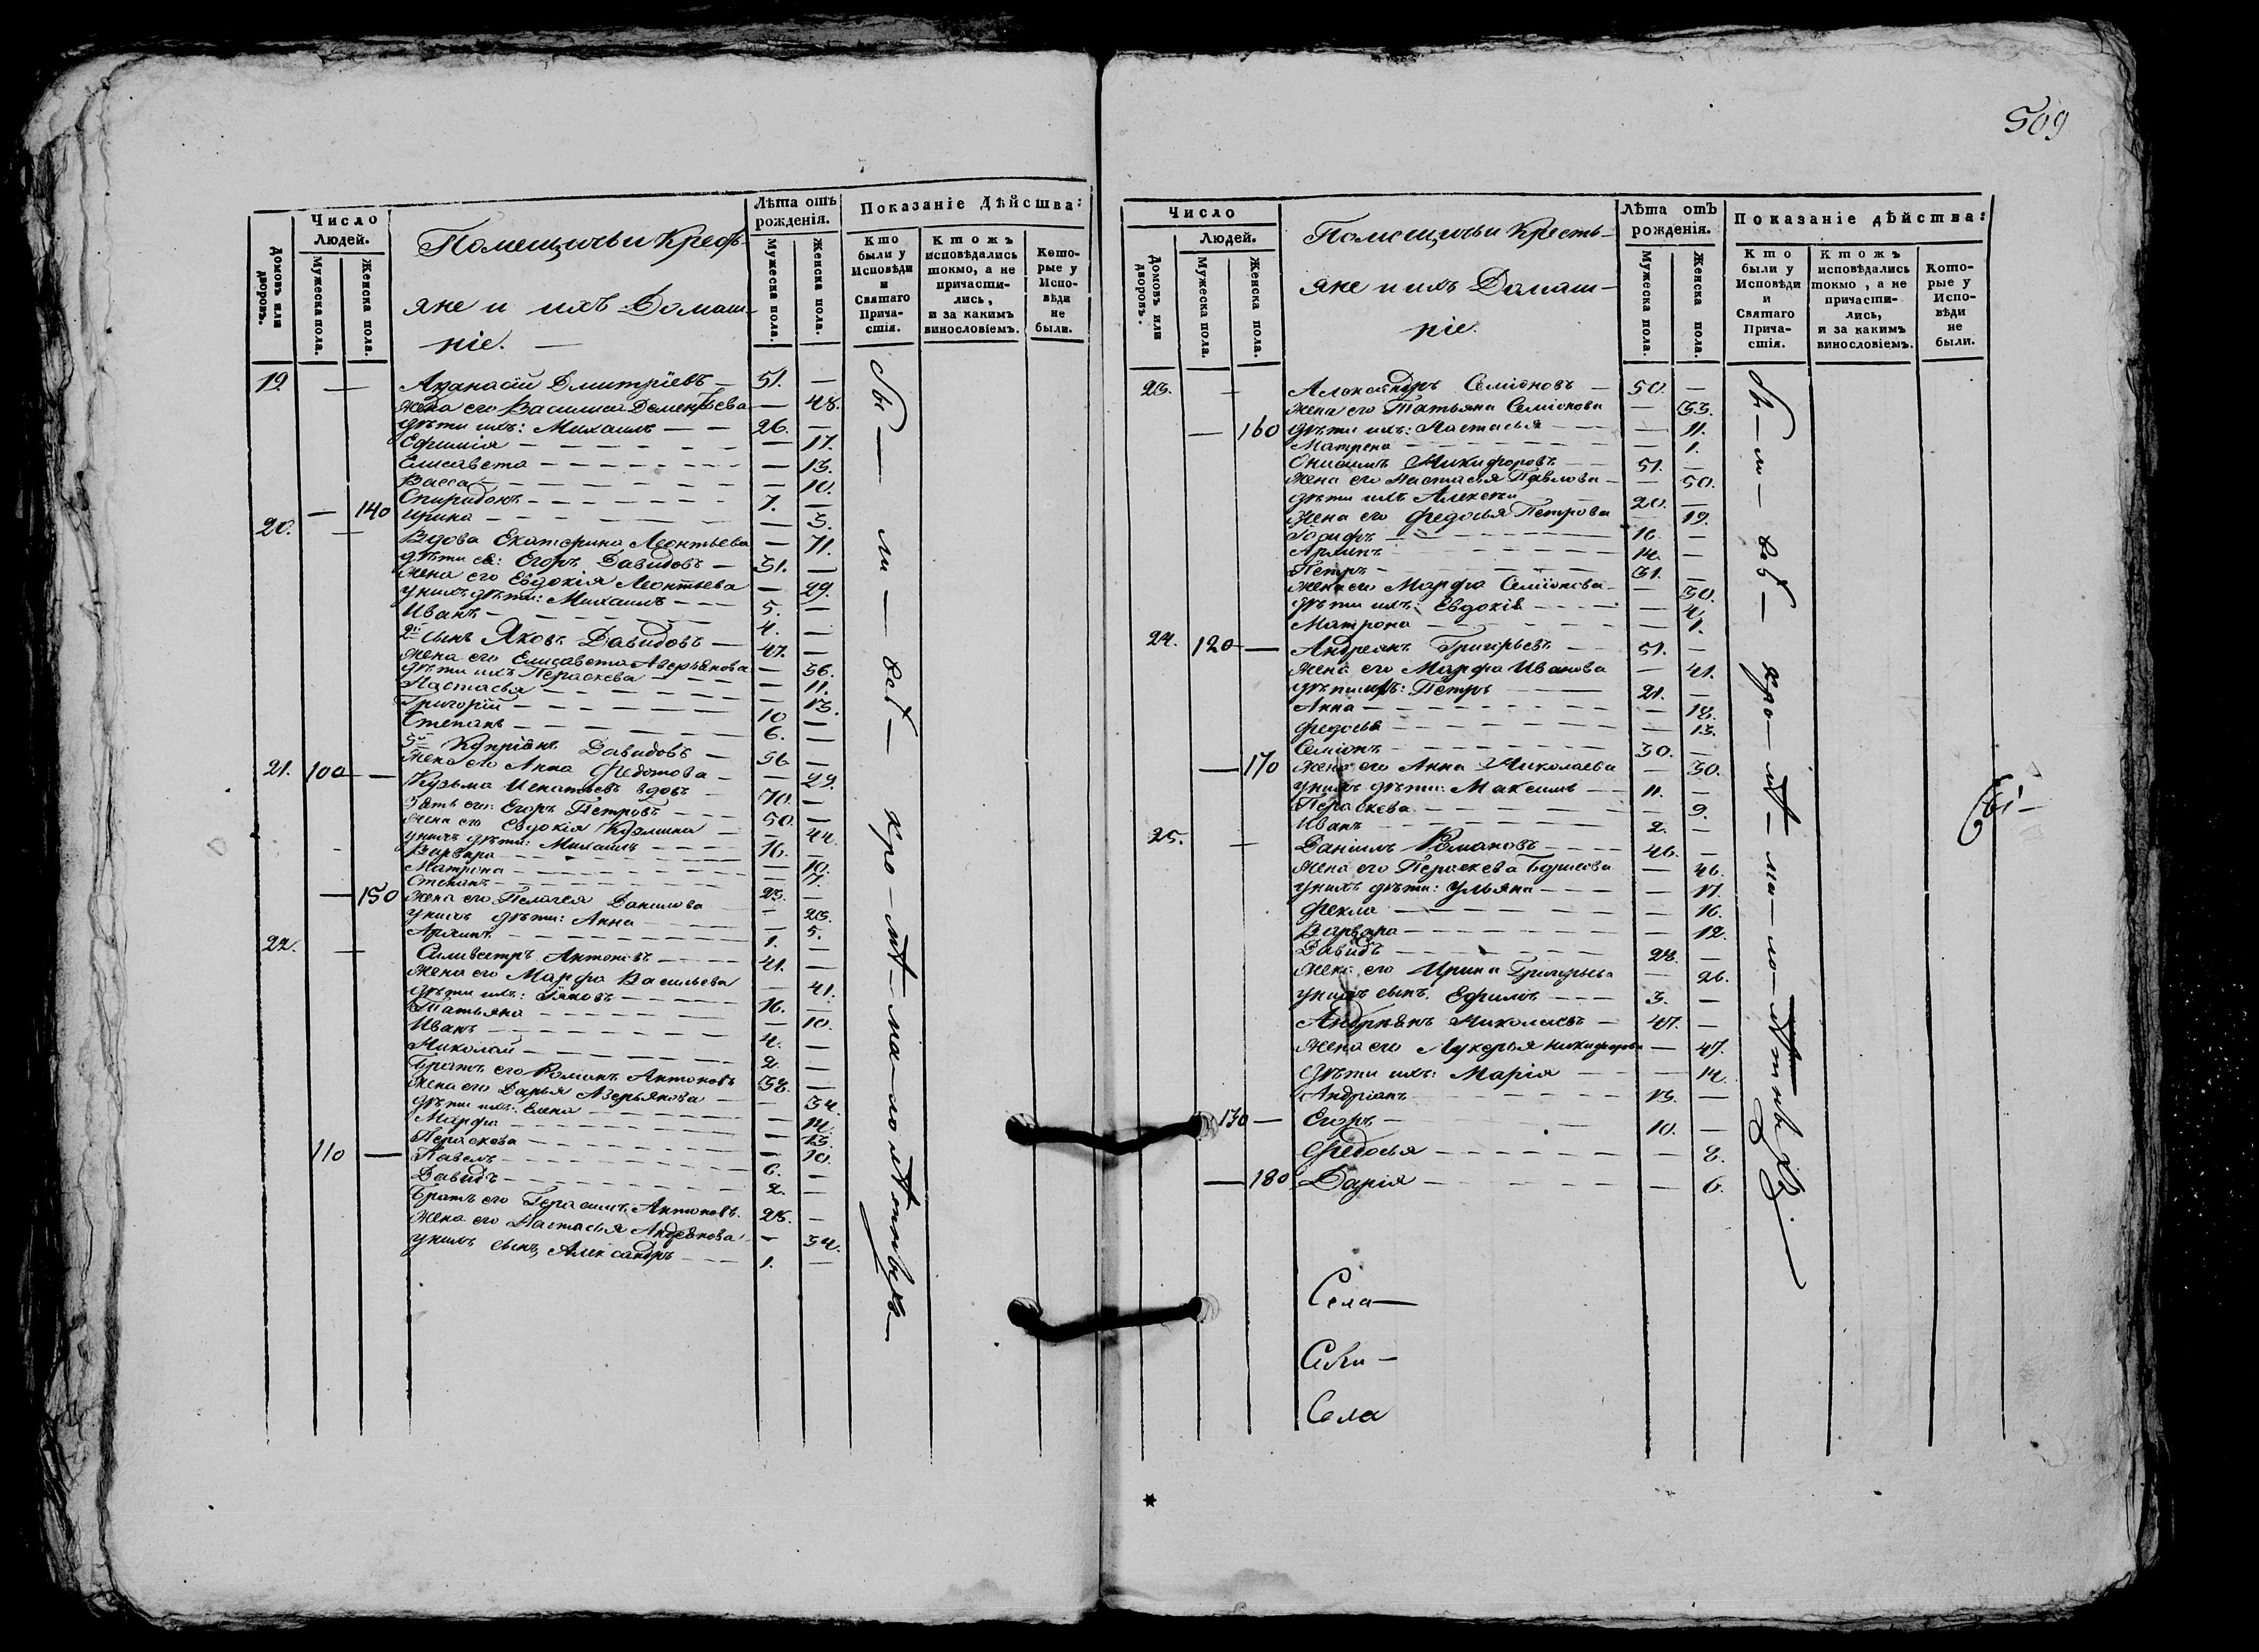 Домовъ или дворовъ.
Число Людей.
Мужеска пола.
Женска пола.
Помещичьи Кресть-
яне и ихъ Домаш-
ніе. —
Лѣта отъ рожденія.
Мужеска пола.
Женска пола.
Показаніе Дѣйства:
Кто были у Исповѣди и Святаго Прича-стія.
Ктожъ исповѣдались токмо, а не причасти-лись, и за какимъ винословіемъ.
Кото-рые у Испо-вѣди не были.
19. — Афанасій Дмитріевъ — 51. —
Жена его Василиса Дементьева — 48.
дѣти ихъ: Михаилъ — — 26. —
Ефимія — — 17.
Елисавета — — 13.
Васса — — 10.
Спиридонъ — 7. —
— 140 Ирина — — 3.
20. — Вдова Екатерина Леонтьева — 71.
дѣти ея: Егоръ Давидовъ — 31. —
Жена его Евдокія Леонтьева — 29.
у нихъ дѣти: Михаилъ — 5. —
Иванъ — 4. —
2й сынъ Яковъ Давидовъ — 47. —
Жена его Елисавета Аверьянова — 36.
дѣти ихъ Пераскева — — 11.
Настасья — — 13.
Григорій — 10 —
Степанъ — 6. —
3й Кипріанъ Давидовъ — 36 —
Жена его Анна Федотова — — 29.
21. 100 — Кузьма Игнатьевъ вдовъ — 70. —
Зять его: Егоръ Петровъ — 50. —
Жена его Евдокія Кузмина — — 44.
у нихъ дѣти: Михаилъ — 16. —
Варвара — — 10.
Матрона — — 7.
Степанъ — 23. —
— 150 Жена его Пелагея Данилова — 23.
у нихъ дѣти: Анна — — 5.
Архипъ — 1. —
22. — Силивестръ Антоновъ — 41. —
Жена его Марфа Васильева — 41.
дѣти ихъ: Яковъ — 16. —
Татьяна — — 10.
Иванъ — 4. —
Николай — 2. —
Братъ его Романъ Антоновъ 38. —
Жена его Дарья Аверьянова — — 34.
дѣти ихъ: Елена — — 14.
Марфа — — 13.
Пераскева — — 10.
110 — Павелъ — 6. —
Давидъ — 2. —
Братъ его Герасимъ Антоновъ. 28. —
Жена его Настасья Андреянова — 34.
у нихъ сынъ, Александръ — 1. —
509
Домовъ или дворовъ.
Число Людей.
Мужеска пола.
Женска пола.
Помещичьи Кресть-
яне и ихъ Домаш-
ніе.
Лѣта отъ рожденія.
Мужеска пола.
Женска пола.
Показаніе дѣйства:
Кто были у Исповѣди и Святаго Прича-стія.
Ктожъ исповѣдались токмо, а не причасти-лись, и за какимъ винословіемъ.
Кото-рые у Испо-вѣди не были.
23. — Александръ Семіоновъ — 50. —
Жена его Татьяна Семіонова — 33.
— 160 дѣти ихъ: Настасья — — 11.
Матрена — — 1.
Онисимъ Никифоровъ 51. —
Жена его Настасья Павлова — — 50.
дѣти ихъ Алексѣй 20. —
Жена его Федосья Петрова — 19.
16. —
Архипъ 14. —
Петръ — 31. —
Жена его Марфа Семіонова — — 30.
дѣти ихъ: Евдокія — — 4.
Матрона — — 1.
24. 120 — Андреянъ Григорьевъ — 51. —
Жена его Марфа Иванова — 41.
дѣти ихъ: Петръ — 21. —
Анна — — 18.
Федосья — — 13.
Семіонъ — 30. —
— 170 Жена его Анна Николаева — 30.
у нихъ дѣти: Максимъ — 11. —
Пераскева — — 9.
Иванъ — 2. —
25. — Даніилъ Романовъ — 46. —
Жена его Пераскева Борисова — 46.
у нихъ дѣти: Ульяна — — 17.
Фекла — — 16.
Варвара — — 12.
Давидъ — 28. —
Жена его Ирина Григорьева — 26.
у нихъ сынъ, Ефимъ — 3. —
Андреянъ Николаевъ — 47. —
Жена его Лукерья Никифорова — 47.
дѣти ихъ: Марія — — 14.
Андріанъ — 13. —
130 — Егоръ — 10. —
Федосья — — 8.
— 180 Дарія — — 6.
Села —
Села